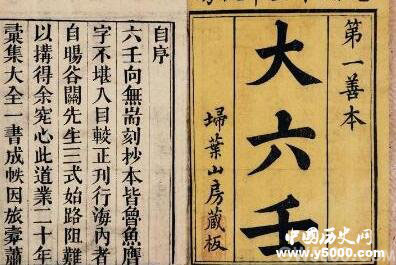 第一善本
大六壬
埽葉山房藏板
自序
六壬向無耑刻抄本皆魯魚贗
字不堪入目較正刊行海內者
自暘谷關先生三式始路阻難
以搆得余究心此道業二十年
彙集大全一書成帙因旅橐蕭
中国历史网
www.y5000.com